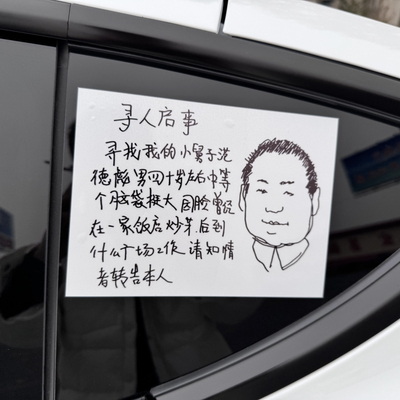 寻人启事
寻找我的小舅子沈
德彪男四十岁左右中等
个脑袋挺大圆脸曾经
在一家饭店炒菜后到
什么广场工作请知情
者转告本人